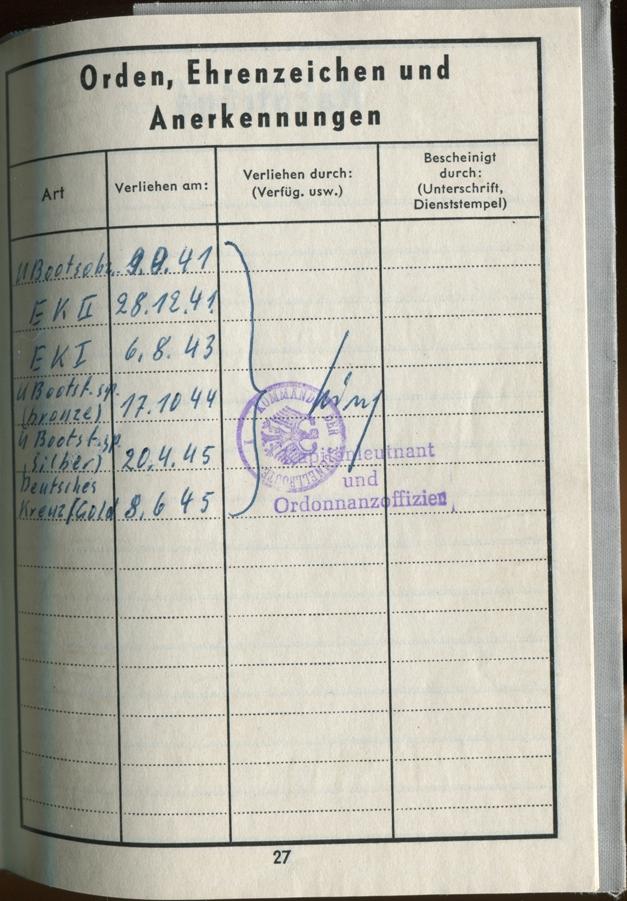 Orden, Ehrenzeichen und
Anerkennungen
Art
Verliehen am:
Verliehen durch:
(Verfüg. usw.)
Bescheinigt
durch:
(Unterschrift,
Dienststempel)
U Bootsabz. 9.9.41
EK II 28.12.41
EK I 6.8.43
U Bootst.sp.
(bronze) 17.10 44
U Bootst.sp.
(silber) 20.4.45
Deutsches
Kreuz/Gold 8.6 45
KOMMANDO DER
Kapitänleutnant
und
Ordonnanzoffizier
27